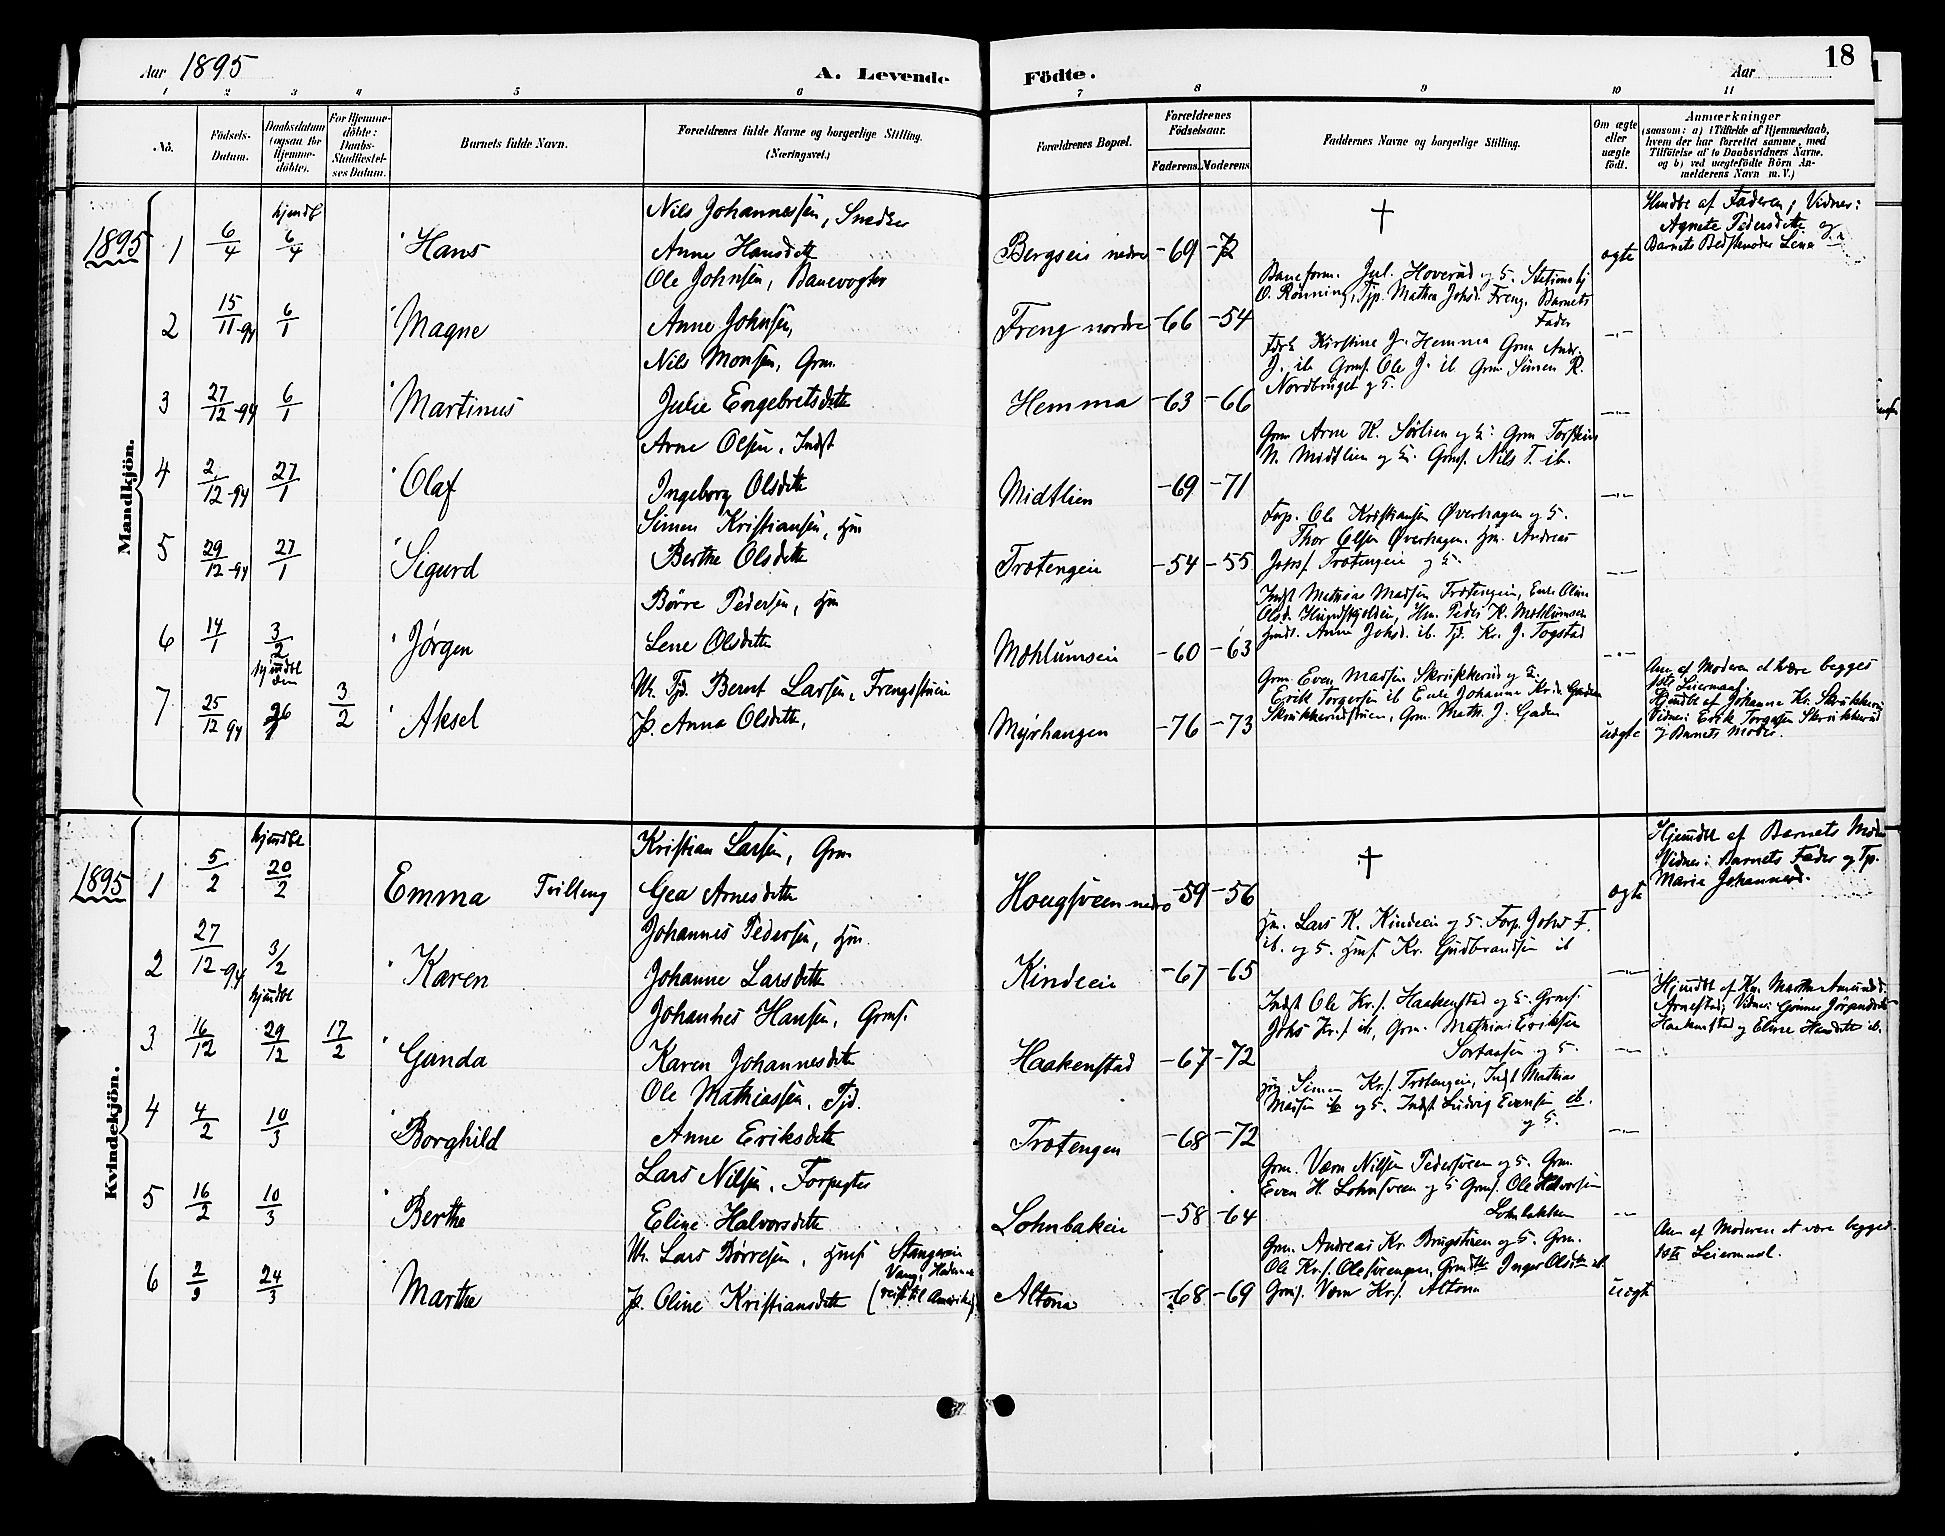 Aar 1895
A. Levende Födte.
Aar
18
1 2 3 4 5 6 7 8 9 10 11
No.
Födsels-Datum.
Daabsdatum (ogsaa for Hjemme-döbte).
For Hjemme-döbte: Daabs-Stadfæstel-ses Datum.
Barnets fulde Navn.
Forældrenes fulde Navne og borgerlige Stilling.
(Næringsvei.)
Forældrenes Bopæl.
Forældrenes Födselsaar.
Faderens. Moderens.
Faddernes Navne og borgerlige Stilling.
Om ægte eller uægte födt.
Anmærkninger
(saasom: a) i Tilfælde af Hjemmedaab,
hvem der har forrettet samme, med
Tilföielse af to Daabsvidners Navne.
og b) ved uægtefödte Börn An-
melderens Navn m. V.)
Mandkjön.
1895 1 6/4 hjemdbt 6/4 Hans
Nils Johannessen, Snedker
Anne Hansdatter
Bergseie nedre -69 -72
†
ægte
Hmdbt af Faderen, Vidner:
Agnete Pedersdatter og
Barnets Bedstemoder Lina
2 15/11-94 6/1 Magne
Ole Johnsen, Banevogter
Anne Johnsen,
Freng nordre -66 -54
Baneform. Jul. Hoverud og H. Stationsbtj
O. Rønning, Tjp. Mathea Johsd. Freng, Barnets
Fader
3 27/12-94 6/1 Martinus
Nils Monsen, Grm.
Julie Engebretsdatter
Hemma -63 -66
Kirstine J. Hemma Grm Andr.
J. ib Grmf. Ole J. ib Grm Simen K.
Nordbruget og H.
4 2/12-94 27/1 Olaf
Arne Olsen, Indst
Ingeborg Olsdatter
Midtlien -69 -71
Grm Arne K. Sørlien og H. Grm Torstein
N. Midtlien og H. Grmf. Nils T. ib.
5 29/12-94 27/1 Sigurd
Simen Kristiansen, Hm
Berthe Olsdatter
Trotengeie -54 -55
Forp. Ole Kristiansen Øverhagen og H.
Thor Olsen Øverhagen. Hm. Andreas
Johsf. Trotengeie og H.
6 14/1 3/2 Jørgen
Børre Pedersen, Hm
Lene Olsdatter
Mæhlumseie -60 -63
Indst Mathias Madsen Trotengeie, Enke Oline
Olsd. Hm. Peder K. Mæhlumseie
Anne Johsd. ib. Tj. Kr. J. Togstad
7 25/12 94 hjemdbt 26 3/2 Aksel
Uk. Tjd. Bernt Larsen, Frengstuen
P. Anna Olsdatter,
Myrhaugen -76 -73
Grm Even Madsen Skrukkerud og H.
Erik Torgersen ib Enke Johanne Kr.d. Gaden
Skrukkerudstuen, Grm. Math. J. Gaden
uægte
Ann. af Moderen at være begges
1ste Leiermaal
Hjemdbt af Johanne Kr. Skrukkerud
Vidner: Erik Torgersen Skrukkerud
og Barnets Moder.
Kvindekjön.
1895 1 5/2 hjemdbt 20/2 Emma Tvilling
Kristian Larsen, Grm
Gea Arnesdatter
Hougsveen nedre -59 -56
†
ægte
Hjemdbt af Barnets Moder
Vidner: Barnets Fader og Tp.
Marie Johannesd.
2 27/12-94 3/2 Karen
Johannes Pedersen, Hm.
Johanne Larsdatter
Kindeeie -67 -65
Hm. Lars K. Kindeeie og H. Forp. Johs F.
ib. og H. Hmf. Kr. Gudbrandsen ib
3 16/12 hjemdbt 29/12 17/2 Gunda
Johannes Hansen, Grmf.
Karen Johannesdatter
Haakenstad -67 -72
Indst Ole Kr.f. Haakenstad og H. Grmf.
Johs Kr.f ib, Grm. Mathias Eriksen
og H.
Hjemdbt af Km. Marthe Amundsd.
Arnestad, Vidner: Gunnor Jörgensdatter
Haakenstad og Eline Hansdatter ib.
4 4/2 10/3 Borghild
Ole Mathiassen. Tjd.
Anne Eriksdatter
Trotengen -68 -72
Hm. Simen Kr.f. Trotengeie, Indst Mathias
Madsen ib og H. Indst Ludvig Evensen ib.
og H.
5 16/2 10/3 Berthe
Lars Nilsen, Forpagter
Eline Halvorsdatter
Lohnbakeie -58 -64
Grm. Nilsen Pedersveen og H. Grm.
Even H. Lohnsveen og H Grmf. Ole Halvorsen
Lohnbakken
6 2/3 24/3 Marthe
Uk. Lars Børresen, Hmf Stangeeie
Vang, Hedem.
P. Oline Kristiansdatter (reist til Amerika)
Altona -68 -69
Grm. Andreas Kr. Brugstuen og H. Grm.
Ole Kr.f. Olesvengen, Grmdtr Inger Olsdtr ib.
Grmf. Kr.f. Altona
uægte
Ann af Moderen at være begges
1ste Leiermaal.